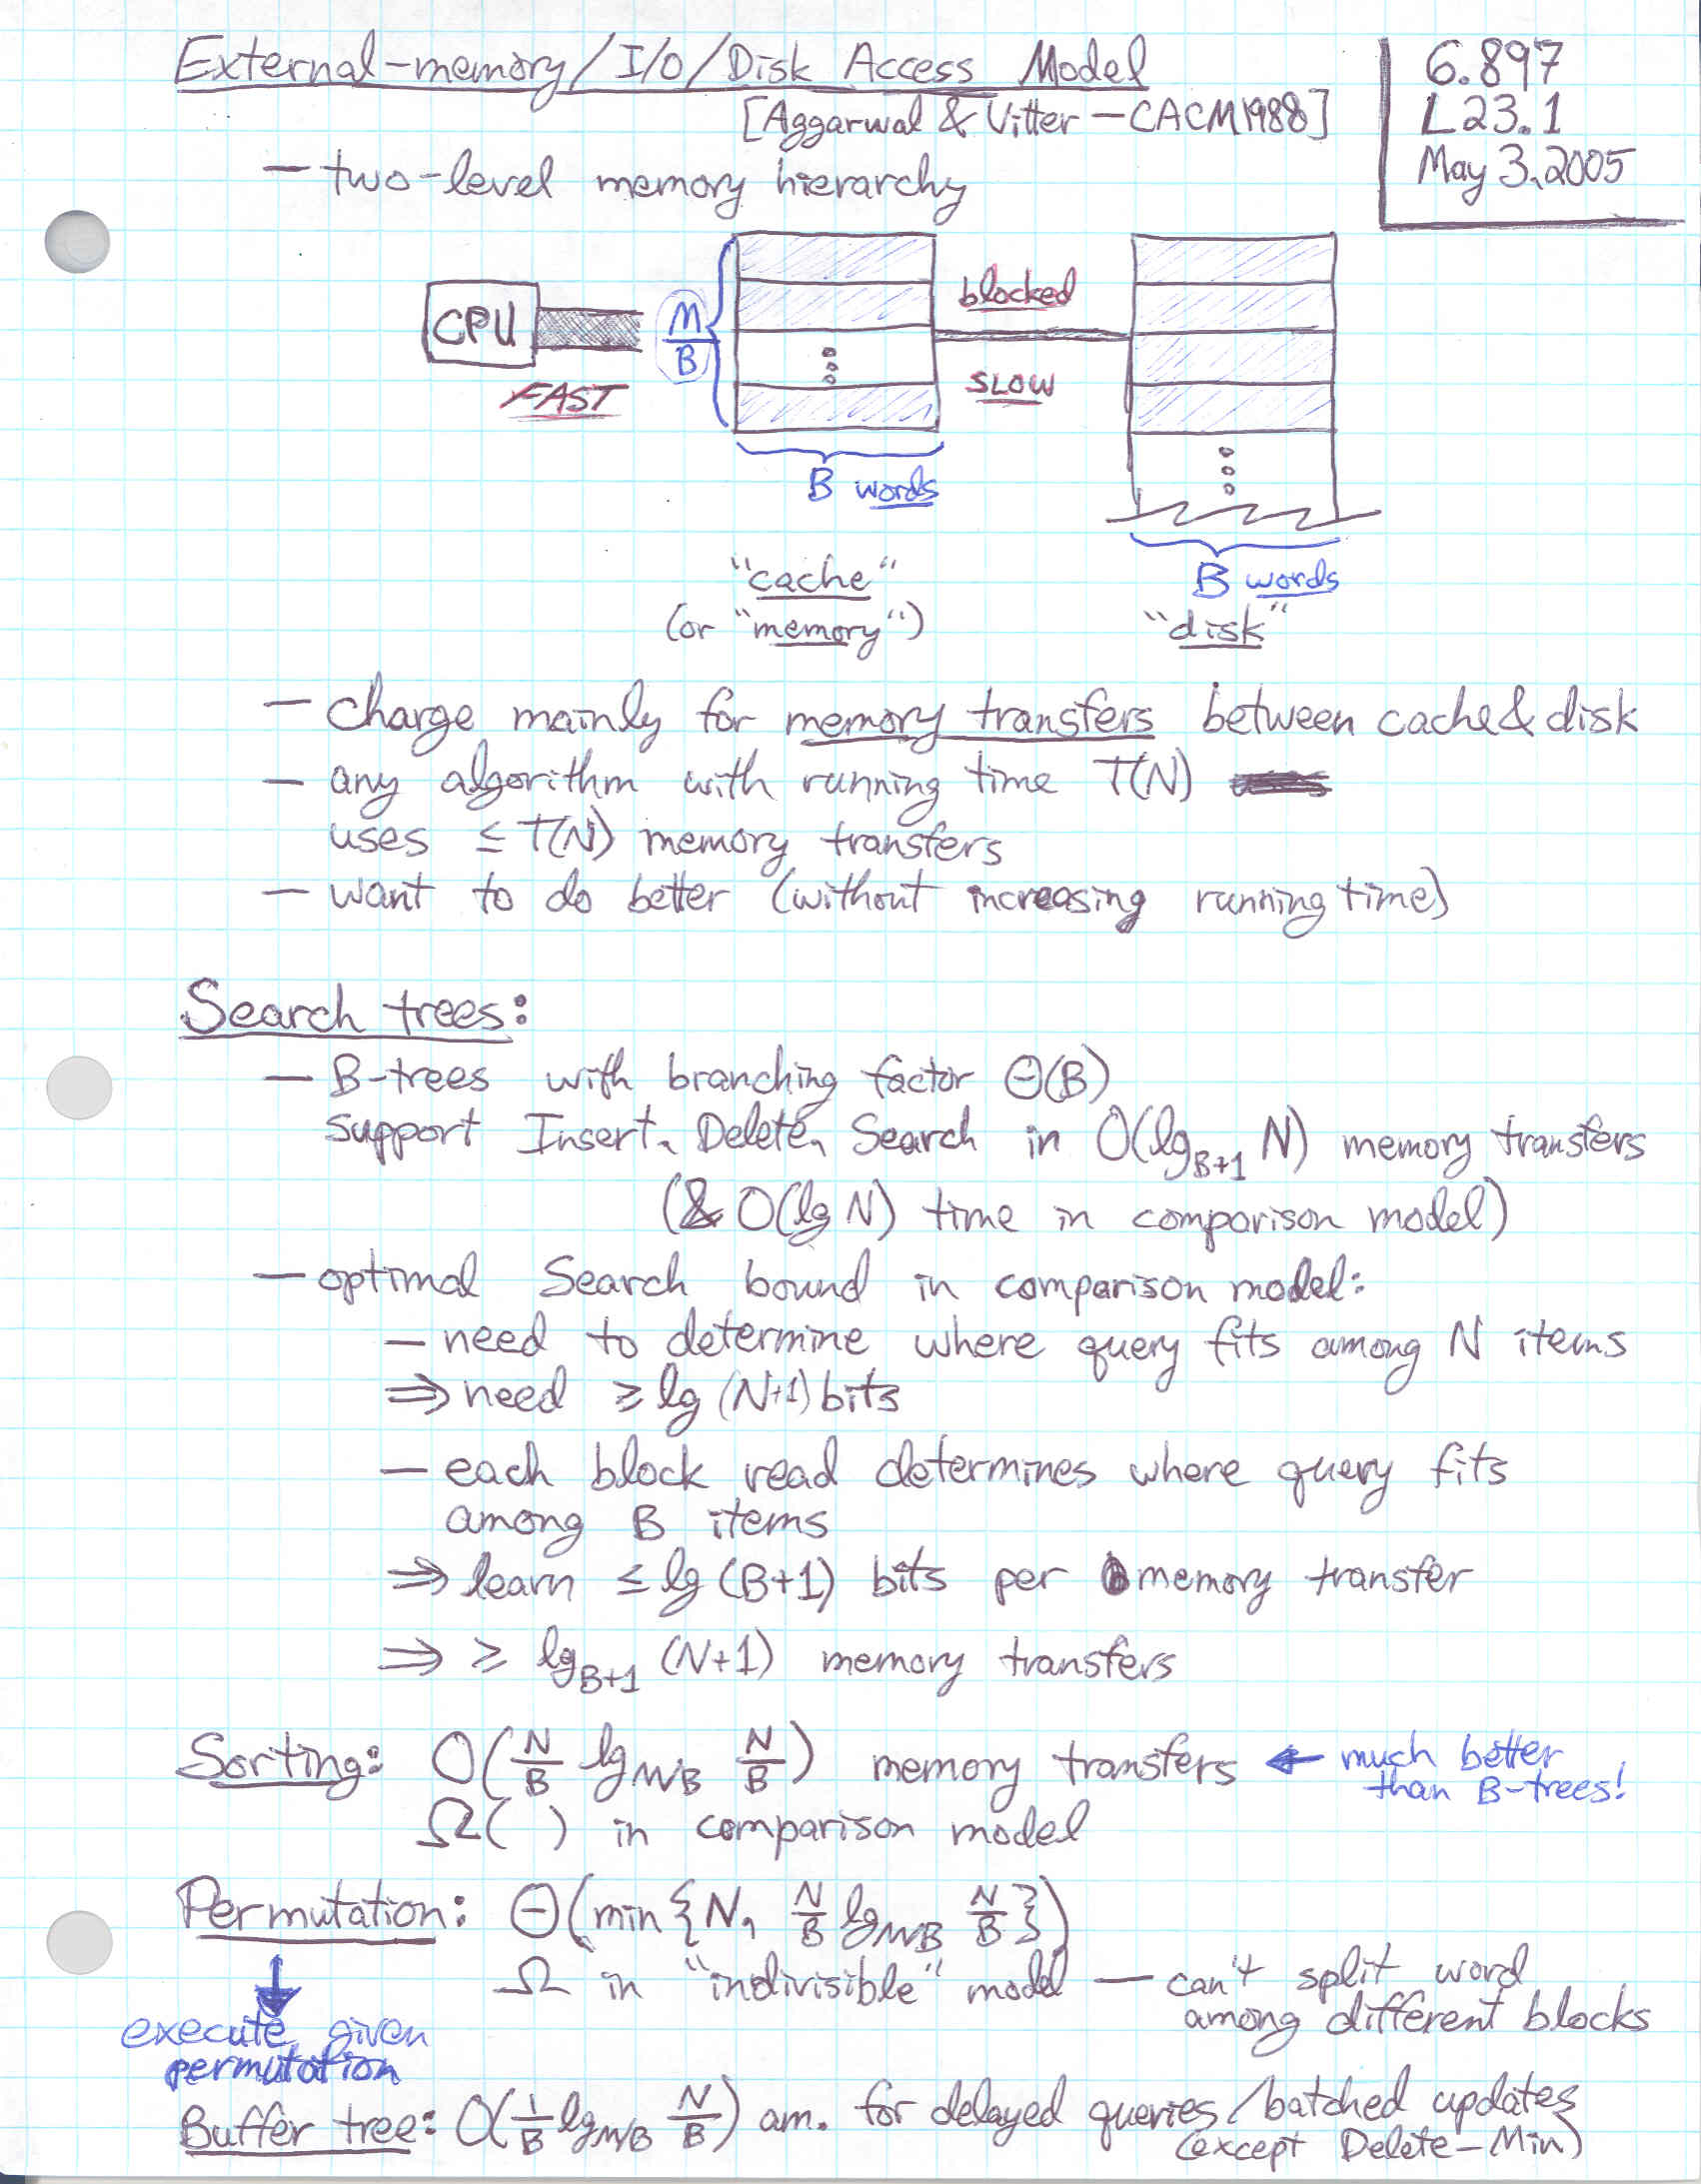 External-memory/I/O/Disk Access Model
[Aggarwal & Vitter – CACM 1988]
6.897
L23.1
May 3, 2005
– two-level memory hierarchy
CPU
FAST
M/B
B words
blocked
SLOW
B words
"cache"
(or "memory")
"disk"
– charge mainly for memory transfers between cache & disk
– any algorithm with running time T(N)
uses ≤ T(N) memory transfers
– want to do better (without increasing running time)
Search trees:
– B-trees with branching factor Θ(B)
support Insert, Delete, Search in O(lg_{B+1} N) memory transfers
(& O(lg N) time in comparison model)
– optimal Search bound in comparison model:
– need to determine where query fits among N items
⇒ need ≥ lg (N+1) bits
– each block read determines where query fits
among B items
⇒ learn ≤ lg (B+1) bits per memory transfer
⇒ ≥ lg_{B+1} (N+1) memory transfers
Sorting: O(N/B lg_{M/B} N/B) memory transfers ← much better
than B-trees!
Ω( ) in comparison model
Permutation: Θ(min{N, N/B lg_{M/B} N/B})
Ω in "indivisible" model – can't split word
among different blocks
↓
execute given
permutation
Buffer tree: O(1/B lg_{M/B} N/B) am. for delayed queries/batched updates
(except Delete-Min)